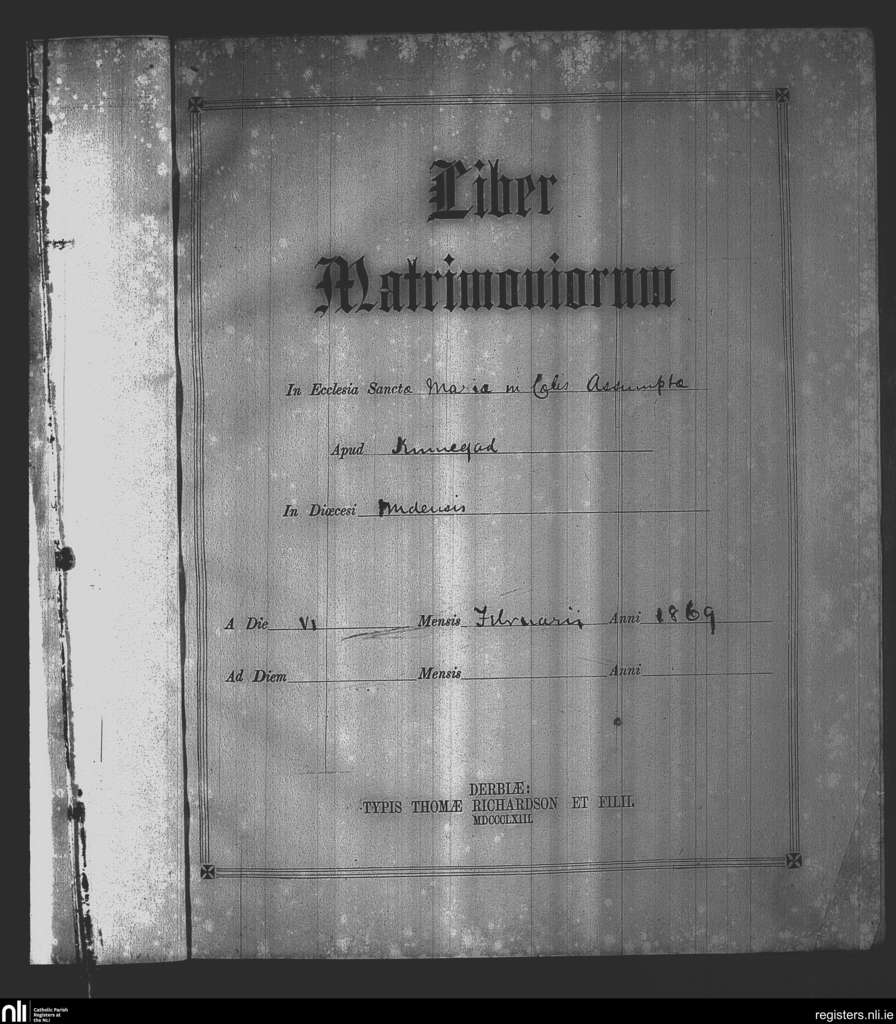 Liber
Matrimoniorum
In Ecclesia Sanctæ Mariæ in Cœlis Assumptæ
Apud Kinnegad
In Diœcesi Midensis
A Die VI Mensis Februarii Anni 1869
Ad Diem Mensis Anni
DERBIÆ:
TYPIS THOMÆ RICHARDSON ET FILII.
MDCCCLXIII.
nli Catholic Parish
Registers at
the NLI
registers.nli.ie